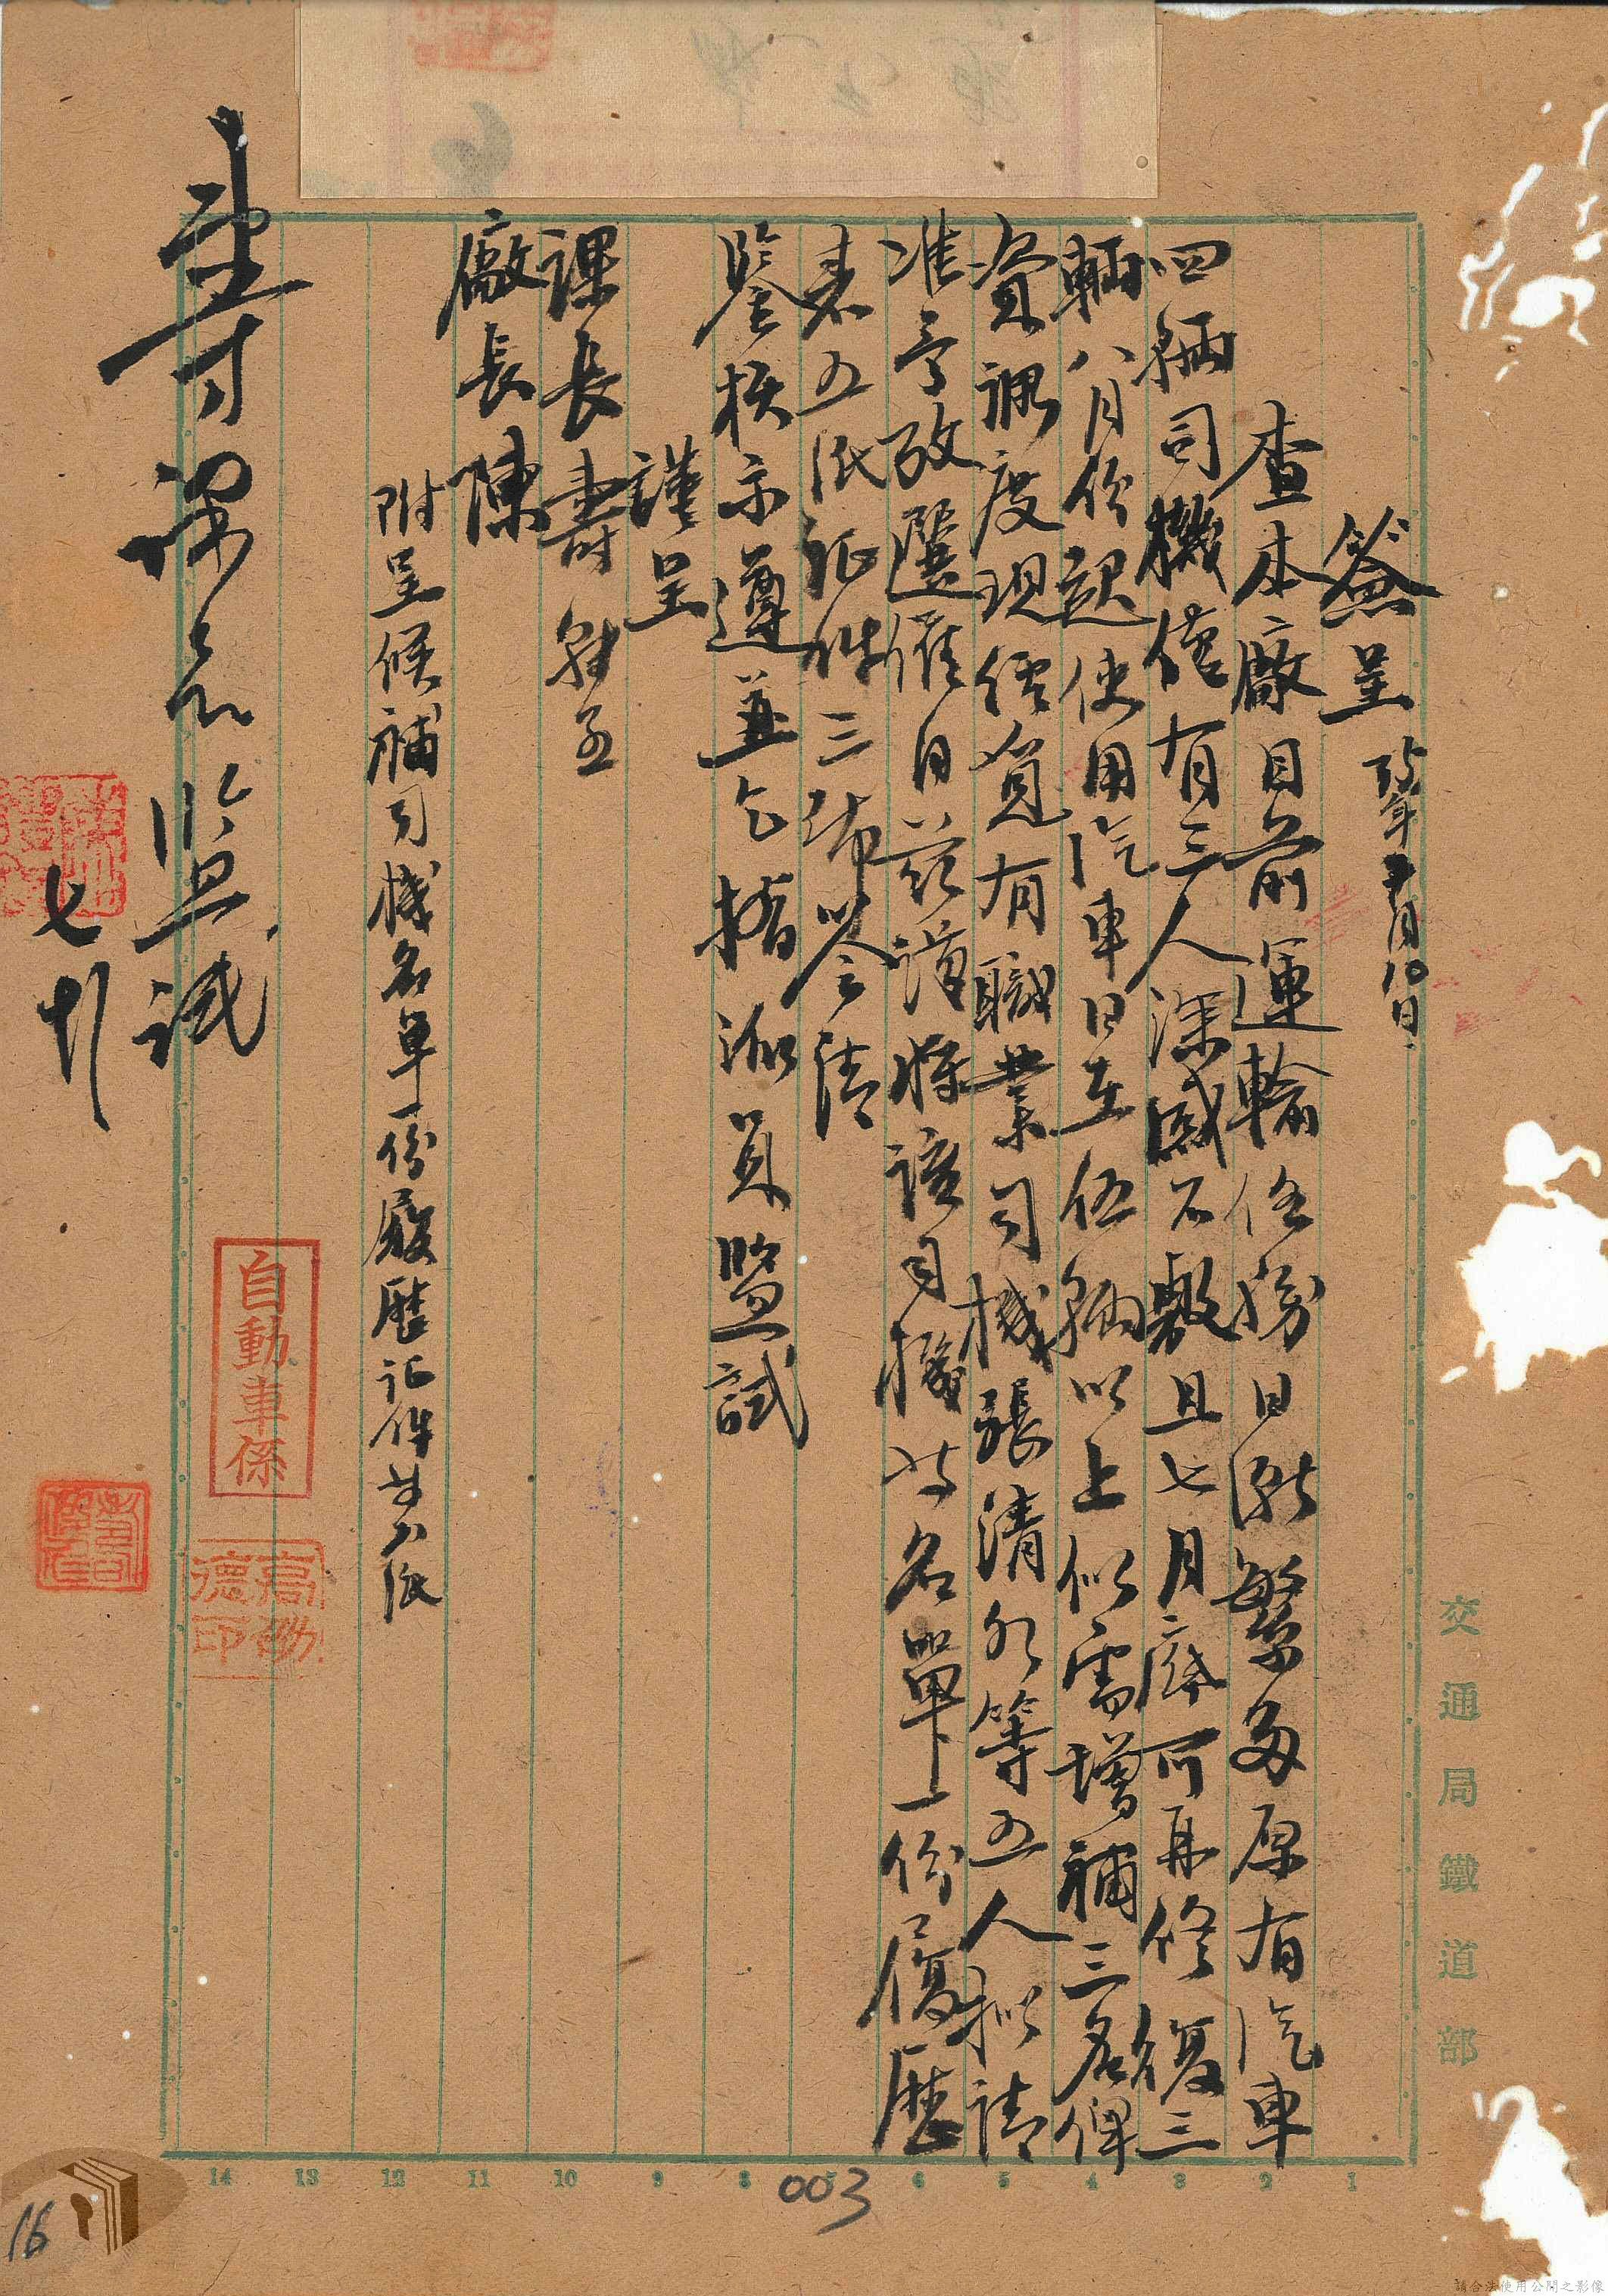 簽呈 35年7月10日
查本廠目前運輸任務日漸繁多原有汽車
四輛司機僅有三人深感不敷且七月底可再修復三
輛八月份起使用汽車日在伍輛以上似需增補三名俾
資調度現經覓有職業司機張清水等五人擬請
准予攷選僱用茲謹將該司機等名單一份履歷
表五紙証件三份以令請
鑒核示遵並乞指派員監試
謹呈
課長壽
廠長陳
附呈候補司機名單一份履歷证件共八紙
壽課長監試
七 十
自動車係
高勋德印
交通局鐵道部
14 13 12 11 10 9 8 7 6 5 4 3 2 1
003
16
請合法使用公開之影像